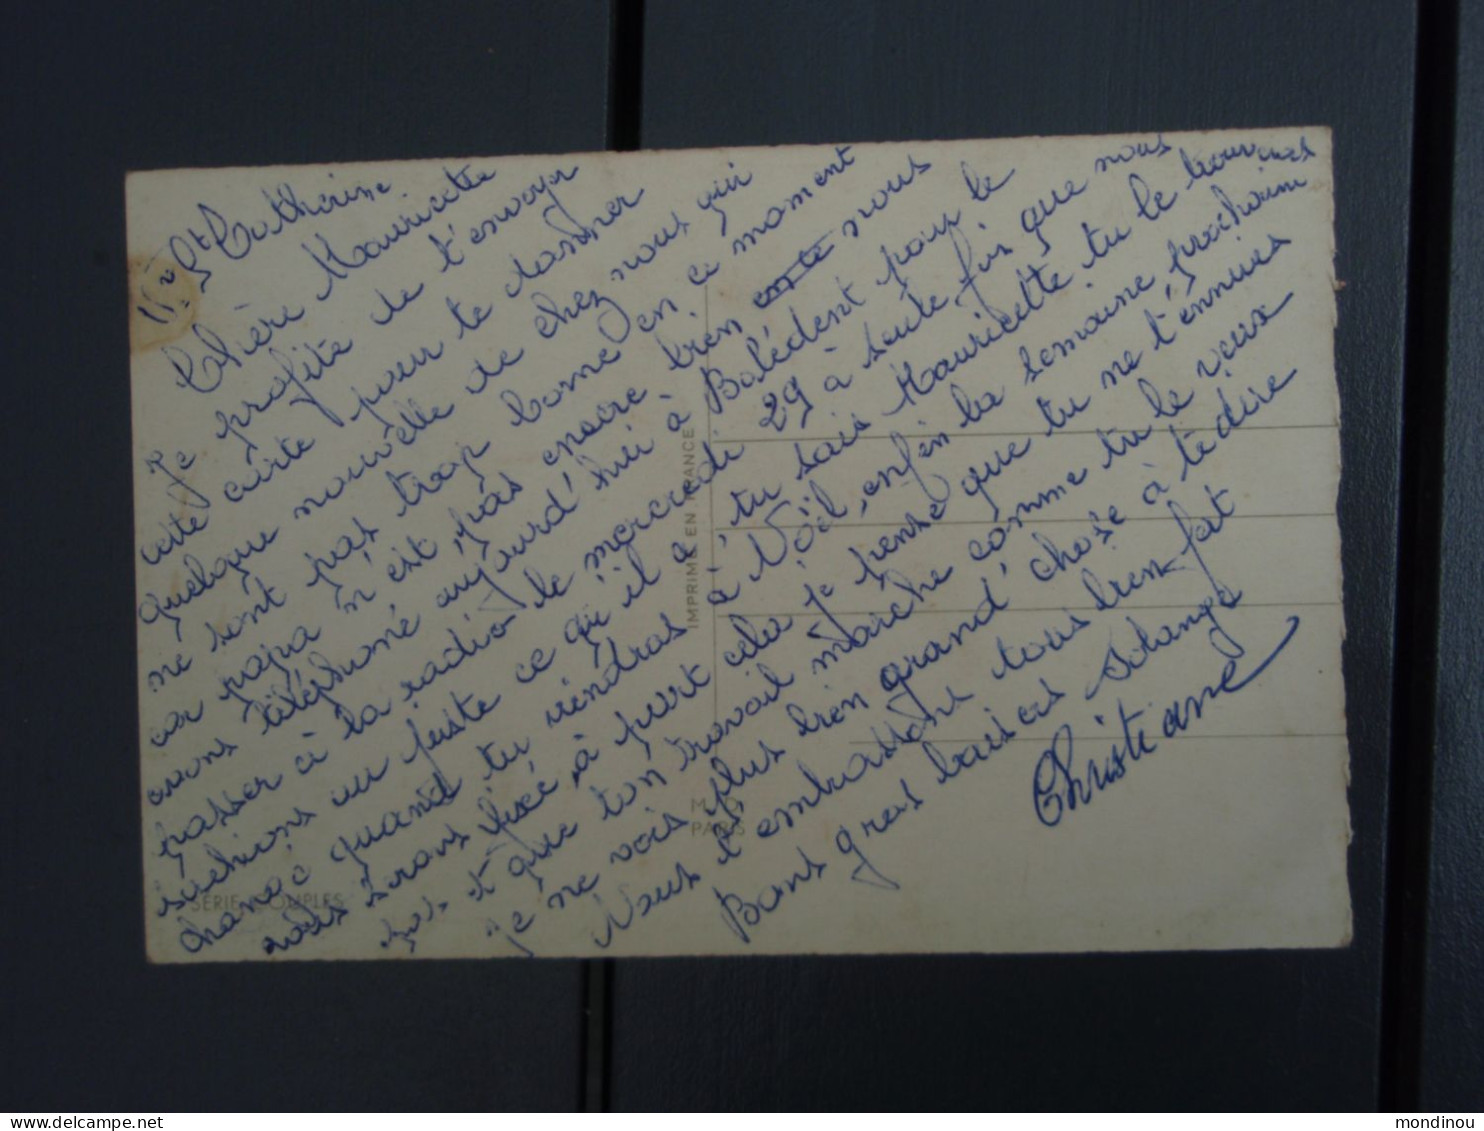 Ste Catherine
Chère Mauricette
Je profite de t'envoyer
cette carte pour te donner
quelque nouvelle de chez nous qui
ne sont pas trop bonne en ce moment
car papa n'est pas encore bien nous
avons téléphoné aujourd'hui à Balédent pour le
passer à la radio le mercredi 29 à seule fin que nous
sachions au juste ce qu'il a, tu sais Mauricette tu le trouveras
changé quand tu viendras à Nöel, enfin la semaine prochaine
nous serons fixé, à part cela je pense que tu ne t'ennuies
pas et que ton travail marche comme tu le veux
je ne vois plus bien grand' chose à te dire
Nous t'embrassons tous bien fat
Bons gros baisers Solange
Christiane
IMPRIMÉ EN FRANCE
M. D.
PARIS
SÉRIE COUPLES
mondinou